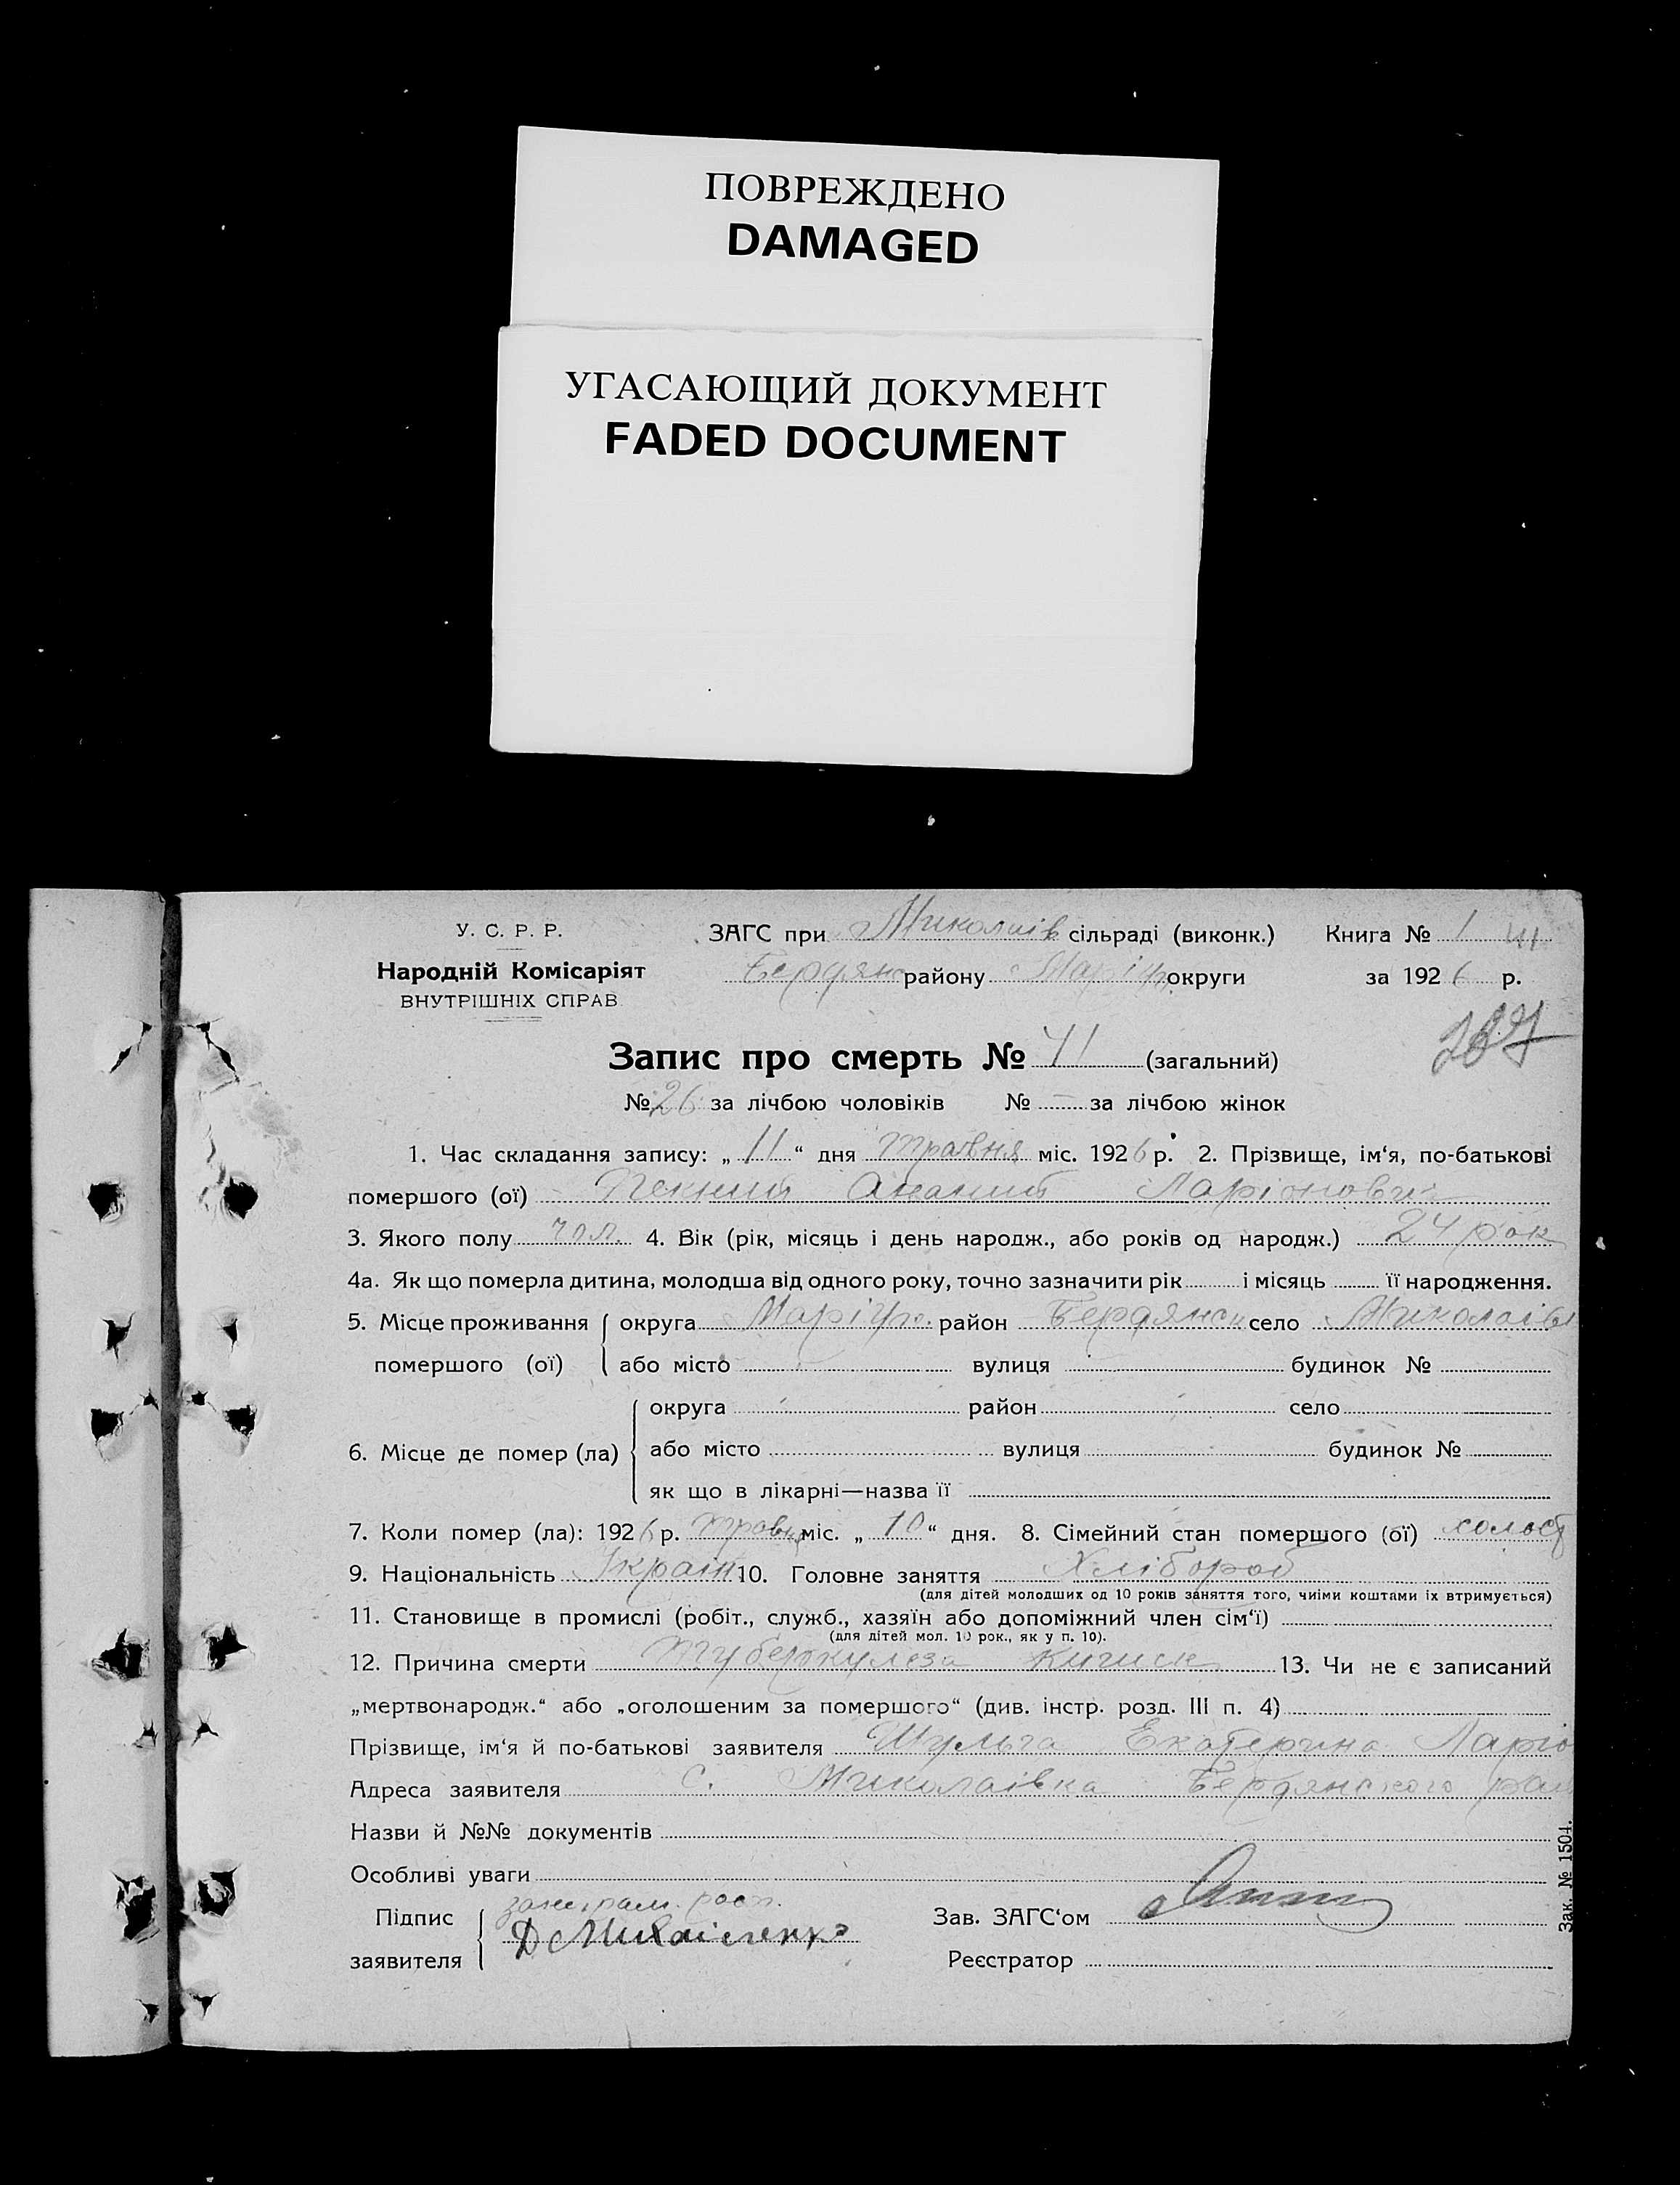 ПОВРЕЖДЕНО
DAMAGED
УГАСАЮЩИЙ ДОКУМЕНТ
FADED DOCUMENT
У. С. Р. Р.
Народній Комісаріят
ВНУТРІШНІХ СПРАВ
ЗАГС при Миколаів сільраді (виконк.) Книга № 1
Бердянс району Маріуп округи за 1926 р.
Запис про смерть № 41 (загальний)
№ 26 за лічбою чоловіків № — за лічбою жінок
1. Час складання запису: „ 11 “ дня травня міс. 1926 р. 2. Прізвище, ім‘я, по-батькові
помершого (ої) Ананий Ларіонович
3. Якого полу чол. 4. Вік (рік, місяць і день народж., або років од народж.) 24 рок
4а. Як що померла дитина, молодша від одного року, точно зазначити рік і місяць її народження.
5. Місце проживання округа Маріуп. район Бердянськ село Миколаівк
помершого (ої) або місто вулиця будинок №
округа район село
6. Місце де помер (ла) або місто вулиця будинок №
як що в лікарні—назва її
7. Коли помер (ла): 1926 р. травня міс. „ 10 “ дня. 8. Сімейний стан помершого (ої) холост
9. Національність Україн 10. Головне заняття Хлібороб
(для дітей молодших од 10 років заняття того, чиїми коштами їх втримується)
11. Становище в промислі (робіт., служб., хазяїн або допоміжний член сім‘ї)
(для дітей мол. 10 рок., як у п. 10).
12. Причина смерти туберкулеза кишок 13. Чи не є записаний
„мертвонародж.“ або „оголошеним за помершого“ (див. інстр. розд. III п. 4)
Прізвище, ім‘я й по-батькові заявителя Шульга Екатерина Ларіо
Адреса заявителя с. Миколаівка Бердянского рай
Назви й №№ документів
Особливі уваги
Підпис
заявителя Д Михайленко
Зав. ЗАГС‘ом
Реєстратор
Зак. № 1504.